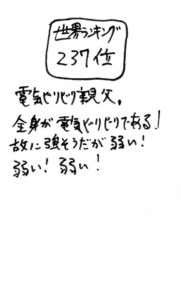 世界ランキング
237位
電気じりじり親父。
全身が電気じりじりである!
故に強そうだが弱い!
弱い!弱い!